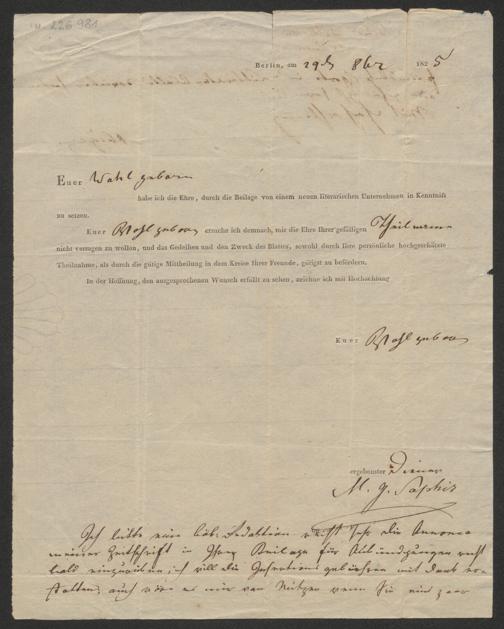 226 981
Berlin, am 29t 8br 1825
Euer Wohlgeborn
habe ich die Ehre, durch die Beilage von einem neuen literarischen Unternehmen in Kenntniß
zu setzen.
Euer Wohlgeborn ersuche ich demnach, mir die Ehre Ihrer gefälligen Theilname
nicht versagen zu wollen, und das Gedeihen und den Zweck des Blattes, sowohl durch Ihre persönliche hochgeschätzte
Theilnahme, als durch die gütige Mittheilung in dem Kreise Ihrer Freunde, gütigst zu befördern.
In der Hoffnung, den ausgesprochenen Wunsch erfüllt zu sehen, zeichne ich mit Hochachtung
Euer Wohlgeborn
ergebenster Diener
M. G. Saphir
Ich bitte eine löb. Redaktion recht sehr die Annonce
meiner Zeitschrift in Beilage für Ankündigungen recht
bald einzurücken, ich will die Insertionsgebühren mit Dank er-
statten, auch wäre es mir von Nutzen wenn Sie ein paar